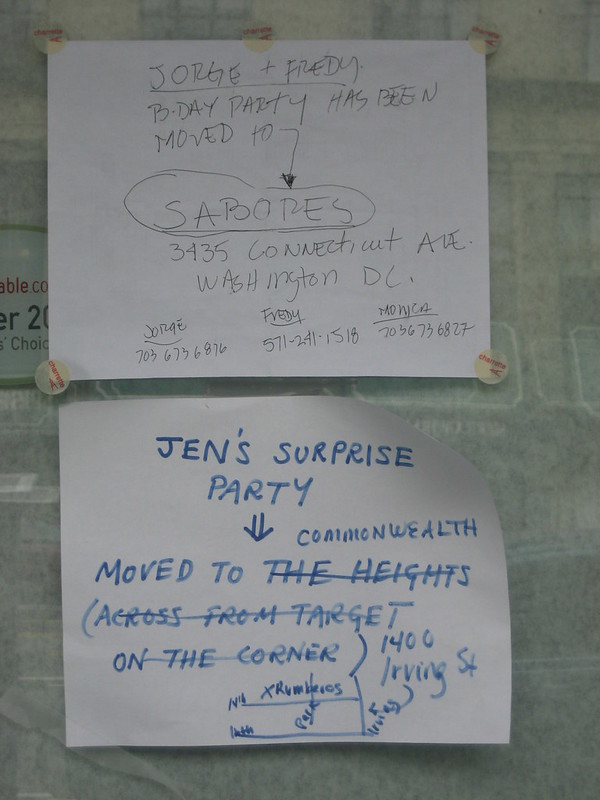 JORGE + FREDY.
B-DAY PARTY HAS BEEN
MOVED TO
SABORES
3435 CONNECTICUT AVE.
WASHINGTON DC.
JORGE
703 673 6876
FREDY
571-241-1518
MONICA
703 673 6827
able.co
er 20
s' Choic
JEN'S SURPRISE
PARTY
COMMONWEALTH
MOVED TO THE HEIGHTS
(ACROSS FROM TARGET
ON THE CORNER)
1400
Irving St
XRumberos
Park
Irving
14th